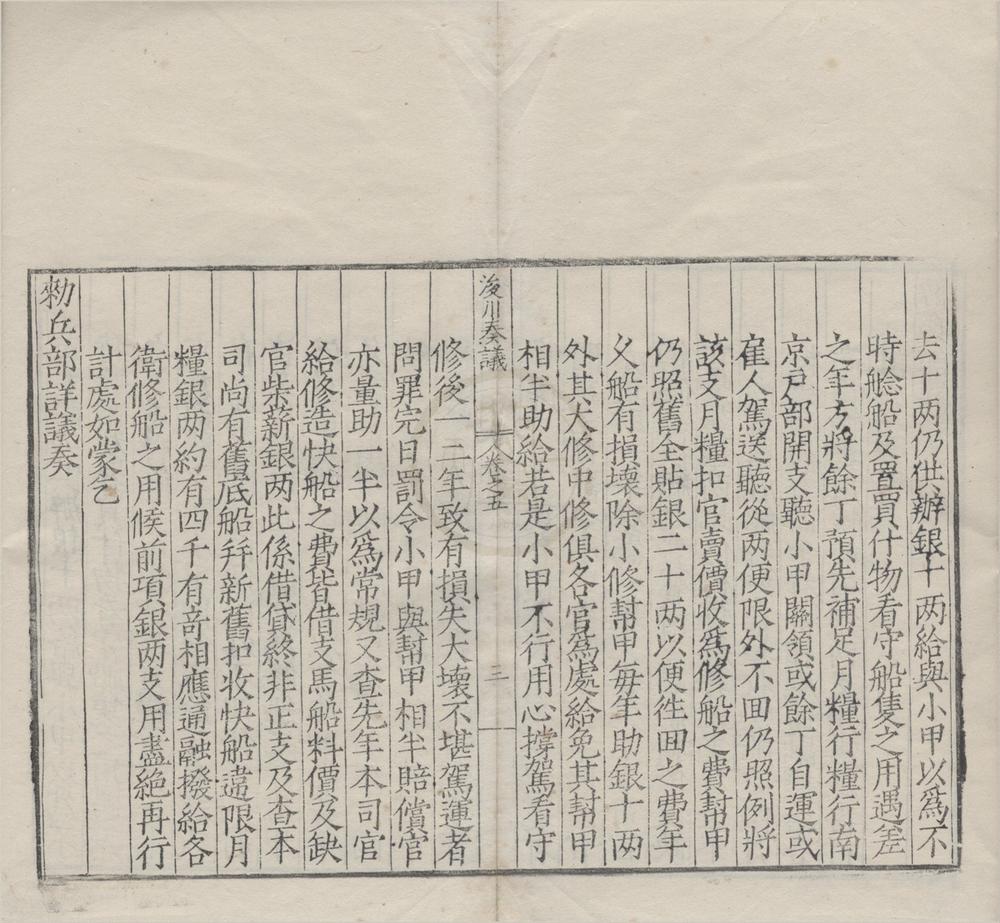 去十两仍供辦銀十两給與小甲以爲不
時艌船及置買什物看守船隻之用遇差
之年方將餘丁預先補足月糧行糧行南
京戸部開支聽小甲關領或餘丁自運或
雇人駕送聽從两便限外不囬仍照例將
該支月糧扣官賣價收爲修船之費幫甲
仍照舊全貼銀二十两以便徃囬之費年
久船有損壞除小修幫甲每年助銀十两
外其大修中修俱各官爲處給免其幫甲
相半助給若是小甲不行用心撐駕看守
浚川奏議
卷之五
三
修後一二年致有損失大壞不堪駕運者
問罪完日罰令小甲與幫甲相半賠償官
亦量助一半以爲常規又查先年本司官
給修造快船之費皆借支馬船料價及缺
官柴薪銀两此係借貸終非正支及查本
司尚有舊底船幷新舊扣收快船違限月
糧銀两約有四千有竒相應通融撥給各
衛修船之用候前項銀两支用盡絶再行
計處如蒙乞
勑兵部詳議奏